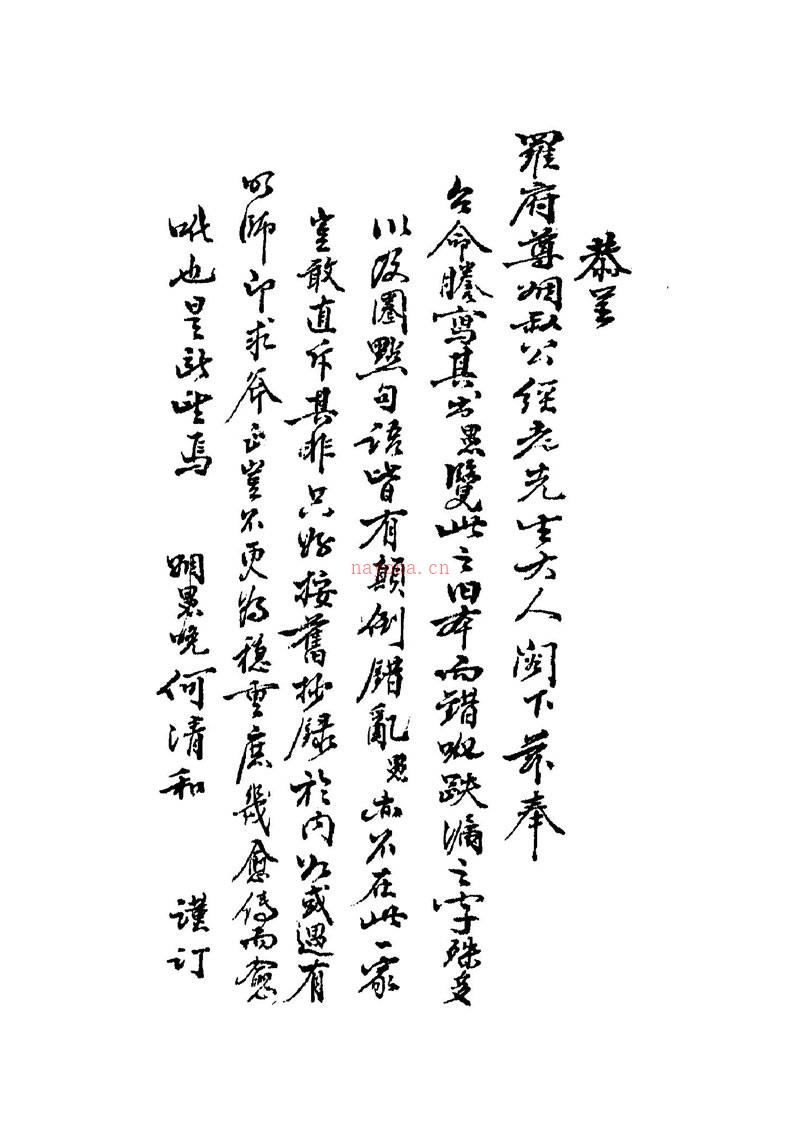 恭呈
羅府尊姻叔公經老先生大人閣下茲奉
台命謄寫其出愚覽此之旧本而錯訛跌漏之字殊多
以及圈點句語皆有顛倒錯亂愚亦不在此一家
豈敢直斥其非只好按舊抄錄於内以或遇有
明師即求斧正豈不更為穩重庶幾愈傳而愈
吡也是所望焉 姻愚晚何清和 謹訂
nayona.cn